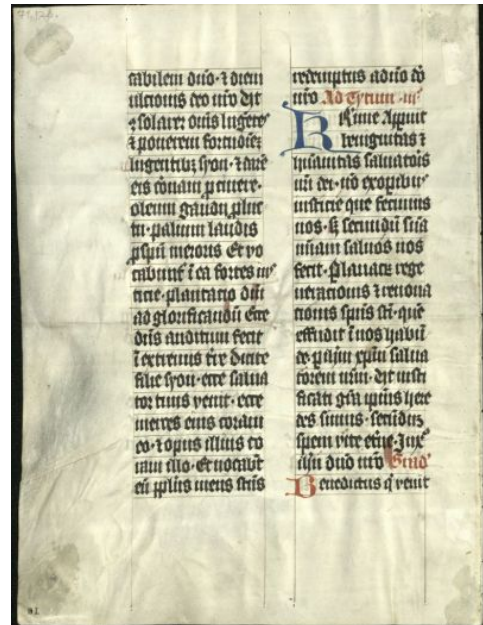 cabilem dno · ⁊ diem
ulcionis deo nro Ut
⁊solarer ōnis lugētes
⁊ ponerem fortudinē
lugentibꝫ syon · ⁊ darē
eis coronam p cinere ·
oleum gaudii p luc
tu · pallium laudis
p spū meroris Et vo
cabunt̄ ī ea fortes ius
ticie · plantacio dn̄i
ad glorificandū Ecce
dn̄s auditum fecit
ī extremis tr̄e Dicite
filie syon · ecce salua
tor tuus venit · ecce
merces eius coram
eo · ⁊ opus illius co
ram illo · Et vocabūt
eū ppl̄us meus sc̄us
redemptus a dn̄o dō
nr̄o Ad Tytum
Kr̄me Apparuit
benignitas ⁊
hūanitas saluatoris
nr̄i dei · nō ex operibus
iusticie que fecimus
nos · sꝫ secundū suā
mīam saluos nos
fecit · P lauacrū rege
neracionis ⁊ renoua
tionis sp̄us sc̄i · quē
effudit ī nos habū
de p ih̄m xp̄m salua
torem nr̄m · Ut iusti
ficati grā ipsius here
des simus · secūdum
spem vite et̄ne · In xp̄o
ih̄u dn̄o nr̄o Grad̄
Benedictus q̄ venit